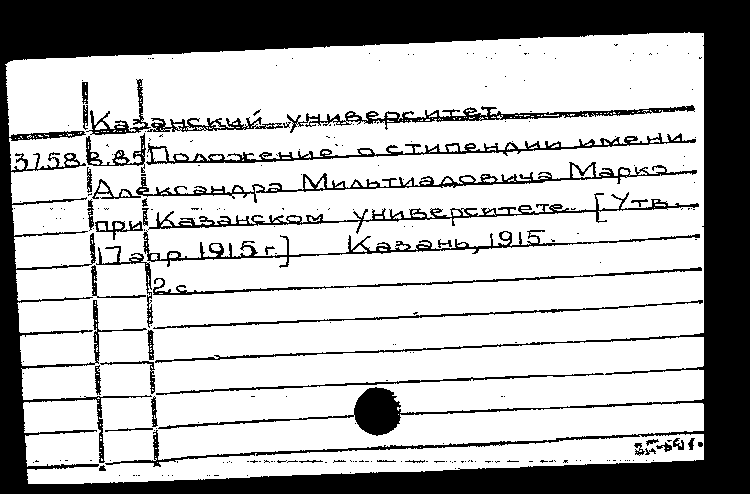 Казанский университет.
37.58.8.85 Положение о стипендии имени
Александра Мильтиадовича Марко
при Казанском университете. [Утв.
17 апр. 1915 г.] Казань, 1915.
2 с.